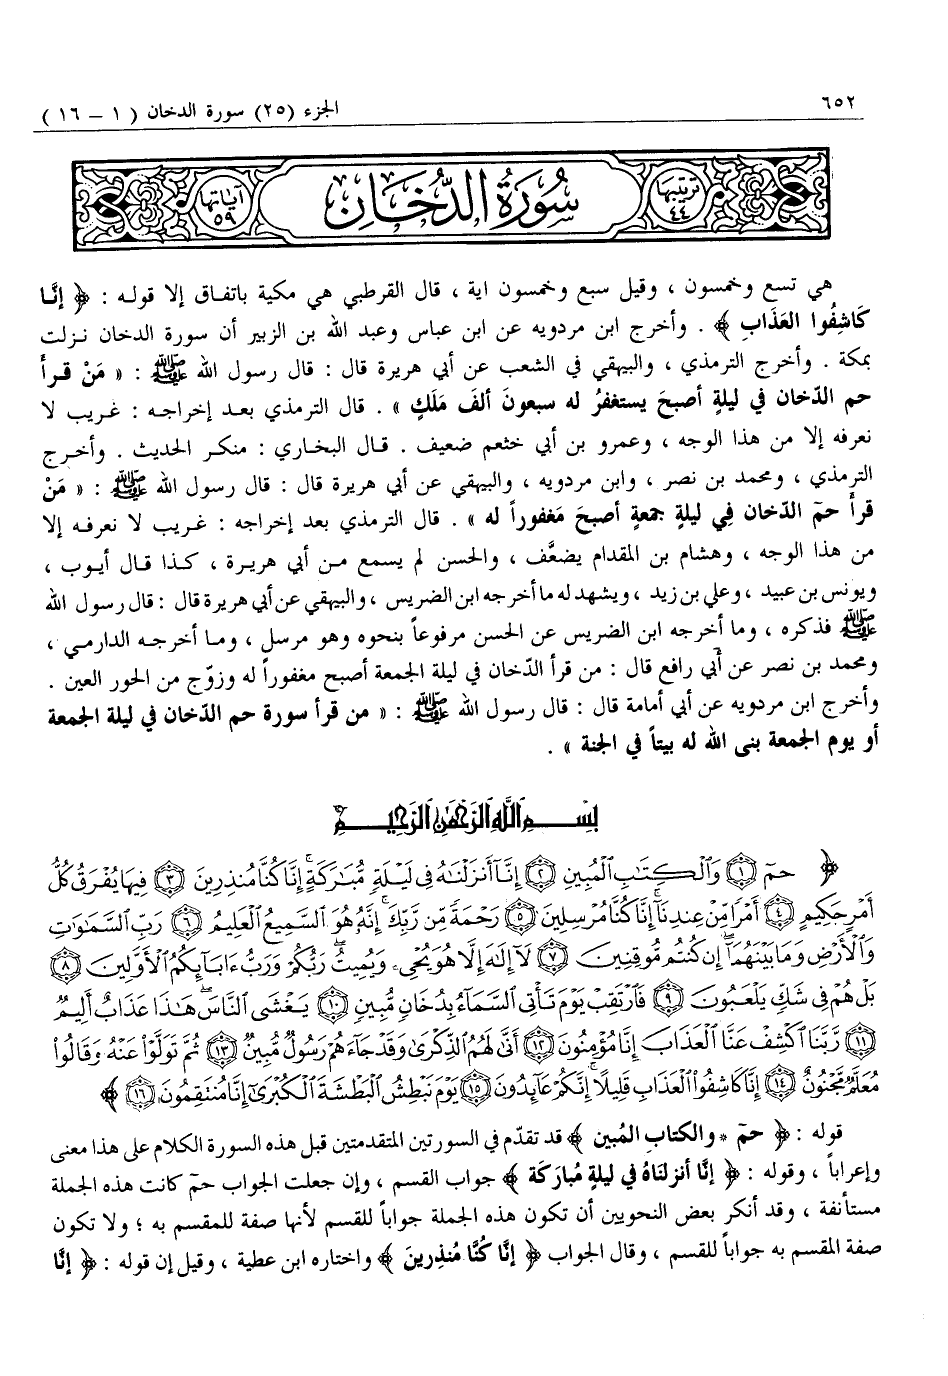 ٦٥٢
الجزء (٢٥) سورة الدخان ( ١ – ١٦ )
ترتيبها ٤٤
سورة الدخان
آياتها ٥٩
هي تسع وخمسون ، وقيل سبع وخمسون اية ، قال القرطبي هي مكية باتفاق إلا قوله : ﴿ إنَّا
كَاشِفُوا العَذَابِ ﴾ . وأخرج ابن مردويه عن ابن عباس وعبد الله بن الزبير أن سورة الدخان نزلت
بمكة . وأخرج الترمذي ، والبيهقي في الشعب عن أبي هريرة قال : قال رسول الله ﷺ : « مَنْ قرأ
حم الدّخان في ليلةٍ أصبحَ يستغفرُ له سبعونَ ألفَ مَلَكٍ » . قال الترمذي بعد إخراجه : غريب لا
نعرفه إلا من هذا الوجه ، وعمرو بن أبي خثعم ضعيف . قال البخاري : منكر الحديث . وأخرج
الترمذي ، ومحمد بن نصر ، وابن مردويه ، والبيهقي عن أبي هريرة قال : قال رسول الله ﷺ : « مَنْ
قرأَ حمَ الدّخان فِي ليلةِ جمعةٍ أصبحَ مَغفوراً له » . قال الترمذي بعد إخراجه : غريب لا نعرفه إلا
من هذا الوجه ، وهشام بن المقدام يضعَّف ، والحسن لم يسمع من أبي هريرة ، كذا قال أيوب ،
ويونس بن عبيد ، وعلي بن زيد ، ويشهد له ما أخرجه ابن الضريس ، والبيهقي عن أبي هريرة قال : قال رسول الله
ﷺ فذكره ، وما أخرجه ابن الضريس عن الحسن مرفوعاً بنحوه وهو مرسل ، وما أخرجه الدارمي ،
ومحمد بن نصر عن أبي رافع قال : من قرأ الدّخان في ليلة الجمعة أصبح مغفوراً له وزوّج من الحور العين .
وأخرج ابن مردويه عن أبي أمامة قال : قال رسول الله ﷺ : « من قرأ سورة حم الدّخان في ليلة الجمعة
أو يوم الجمعة بنى الله له بيتاً في الجنة » .
بِسْمِ اللَّهِ الرَّحْمَٰنِ الرَّحِيمِ
﴿ حمٓ ١ وَٱلْكِتَٰبِ ٱلْمُبِينِ ٢ إِنَّآ أَنزَلْنَٰهُ فِى لَيْلَةٍ مُّبَٰرَكَةٍ ۚ إِنَّا كُنَّا مُنذِرِينَ ٣ فِيهَا يُفْرَقُ كُلُّ
أَمْرٍ حَكِيمٍ ٤ أَمْرًا مِّنْ عِندِنَآ ۚ إِنَّا كُنَّا مُرْسِلِينَ ٥ رَحْمَةً مِّن رَّبِّكَ ۚ إِنَّهُۥ هُوَ ٱلسَّمِيعُ ٱلْعَلِيمُ ٦ رَبِّ ٱلسَّمَٰوَٰتِ
وَٱلْأَرْضِ وَمَا بَيْنَهُمَآ ۖ إِن كُنتُم مُّوقِنِينَ ٧ لَآ إِلَٰهَ إِلَّا هُوَ يُحْىِۦ وَيُمِيتُ ۖ رَبُّكُمْ وَرَبُّ ءَابَآئِكُمُ ٱلْأَوَّلِينَ ٨
بَلْ هُمْ فِى شَكٍّ يَلْعَبُونَ ٩ فَٱرْتَقِبْ يَوْمَ تَأْتِى ٱلسَّمَآءُ بِدُخَانٍ مُّبِينٍ ١٠ يَغْشَى ٱلنَّاسَ ۖ هَٰذَا عَذَابٌ أَلِيمٌ
١١ رَّبَّنَا ٱكْشِفْ عَنَّا ٱلْعَذَابَ إِنَّا مُؤْمِنُونَ ١٢ أَنَّىٰ لَهُمُ ٱلذِّكْرَىٰ وَقَدْ جَآءَهُمْ رَسُولٌ مُّبِينٌ ١٣ ثُمَّ تَوَلَّوْا۟ عَنْهُ وَقَالُوا۟
مُعَلَّمٌ مَّجْنُونٌ ١٤ إِنَّا كَاشِفُوا۟ ٱلْعَذَابِ قَلِيلًا ۚ إِنَّكُمْ عَآئِدُونَ ١٥ يَوْمَ نَبْطِشُ ٱلْبَطْشَةَ ٱلْكُبْرَىٰٓ إِنَّا مُنتَقِمُونَ ١٦ ﴾
قوله : ﴿ حمَ * والكتاب المُبين ﴾ قد تقدّم في السورتين المتقدمتين قبل هذه السورة الكلام على هذا معنى
وإعراباً ، وقوله : ﴿ إنَّا أنزلنَاهُ في ليلةٍ مُبارَكَة ﴾ جواب القسم ، وإن جعلت الجواب حمَ كانت هذه الجملة
مستأنفة ، وقد أنكر بعض النحويين أن تكون هذه الجملة جواباً للقسم لأنها صفة للمقسم به ؛ ولا تكون
صفة المقسم به جواباً للقسم ، وقال الجواب ﴿ إنَّا كُنَّا مُنذِرينَ ﴾ واختاره ابن عطية ، وقيل إن قوله : ﴿ إنَّا